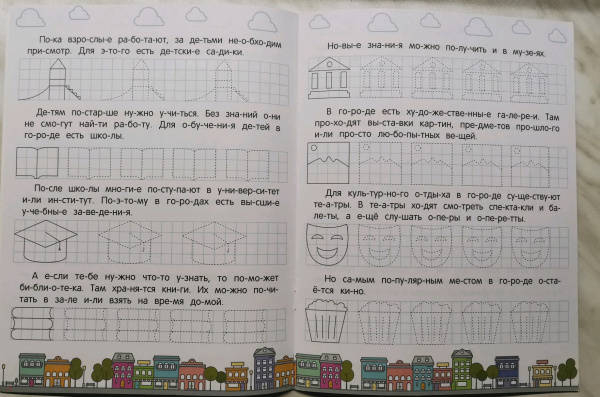 По-ка взро-слы-е ра-бо-та-ют, за де-тьми не-о-бхо-дим
при-смотр. Для э-то-го есть де-тски-е са-ди-ки.
Де-тям по-стар-ше ну-жно у-чи-ться. Без зна-ний о-ни
не смо-гут най-ти ра-бо-ту. Для о-бу-че-ни-я де-тей в
го-ро-де есть шко-лы.
По-сле шко-лы мно-ги-е по-сту-па-ют в у-ни-вер-си-тет
и-ли ин-сти-тут. По-э-то-му в го-ро-дах есть вы-сши-е
у-че-бны-е за-ве-де-ни-я.
А е-сли те-бе ну-жно что-то у-знать, то по-мо-жет
би-бли-о-те-ка. Там хра-ня-тся кни-ги. Их мо-жно по-чи-
тать в за-ле и-ли взять на вре-мя до-мой.
Но-вы-е зна-ни-я мо-жно по-лу-чить и в му-зе-ях.
В го-ро-де есть ху-до-же-стве-нны-е га-ле-ре-и. Там
про-хо-дят вы-ста-вки кар-тин, пре-дме-тов про-шло-го
и-ли про-сто лю-бо-пы-тных ве-щей.
Для куль-тур-но-го о-тды-ха в го-ро-де су-ще-ству-ют
те-а-тры. В те-а-тры хо-дят смо-треть спе-кта-кли и ба-
ле-ты, а е-щё слу-шать о-пе-ры и о-пе-ре-тты.
Но са-мым по-пу-ляр-ным ме-стом в го-ро-де о-ста-
ё-тся ки-но.